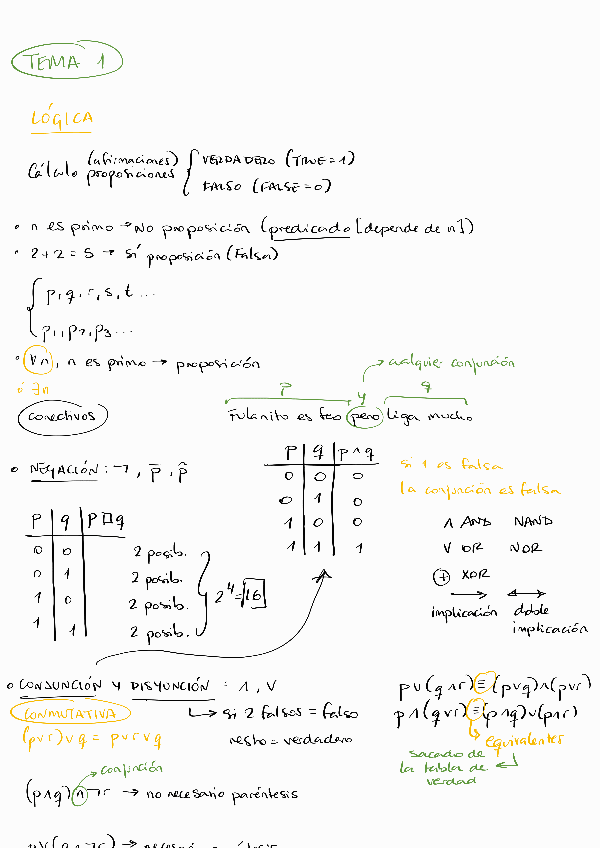 TEMA 1
LÓGICA
Cálculo (afirmaciones) proposiciones { VERDADERO (TRUE=1)
FALSO (FALSE=0)
• n es primo → No proposición (predicado [depende de n])
• 2+2=5 → sí proposición (Falsa)
{ p, q, r, s, t ...
p₁, p₂, p₃ ...
• ∀n, n es primo → proposición
ó ∃n
→ cualquier conjunción
p y q
conectivos
Fulanito es feo pero liga mucho
• NEGACIÓN : ¬, p̄, p̂
p | q | p ∧ q
0 0 0
0 1 0
1 0 0
1 1 1
si 1 es falsa
la conjunción es falsa
p | q | p □ q
0 0 2 posib.
0 1 2 posib.
1 0 2 posib.
1 1 2 posib.
2⁴ = 16
∧ AND NAND
∨ OR NOR
⊕ XOR
→ ↔
implicación doble
implicación
• CONJUNCIÓN Y DISYUNCIÓN : ∧, ∨
CONMUTATIVA
↳ si 2 falsos = falso
(p∨r)∨q = p∨r∨q
resto = verdadero
p∨(q∧r) ≡ (p∨q)∧(p∨r)
p∧(q∨r) ≡ (p∧q)∨(p∧r)
equivalentes
sacado de
la tabla de
verdad
→ conjunción
(p∧q)∧¬r → no necesario paréntesis